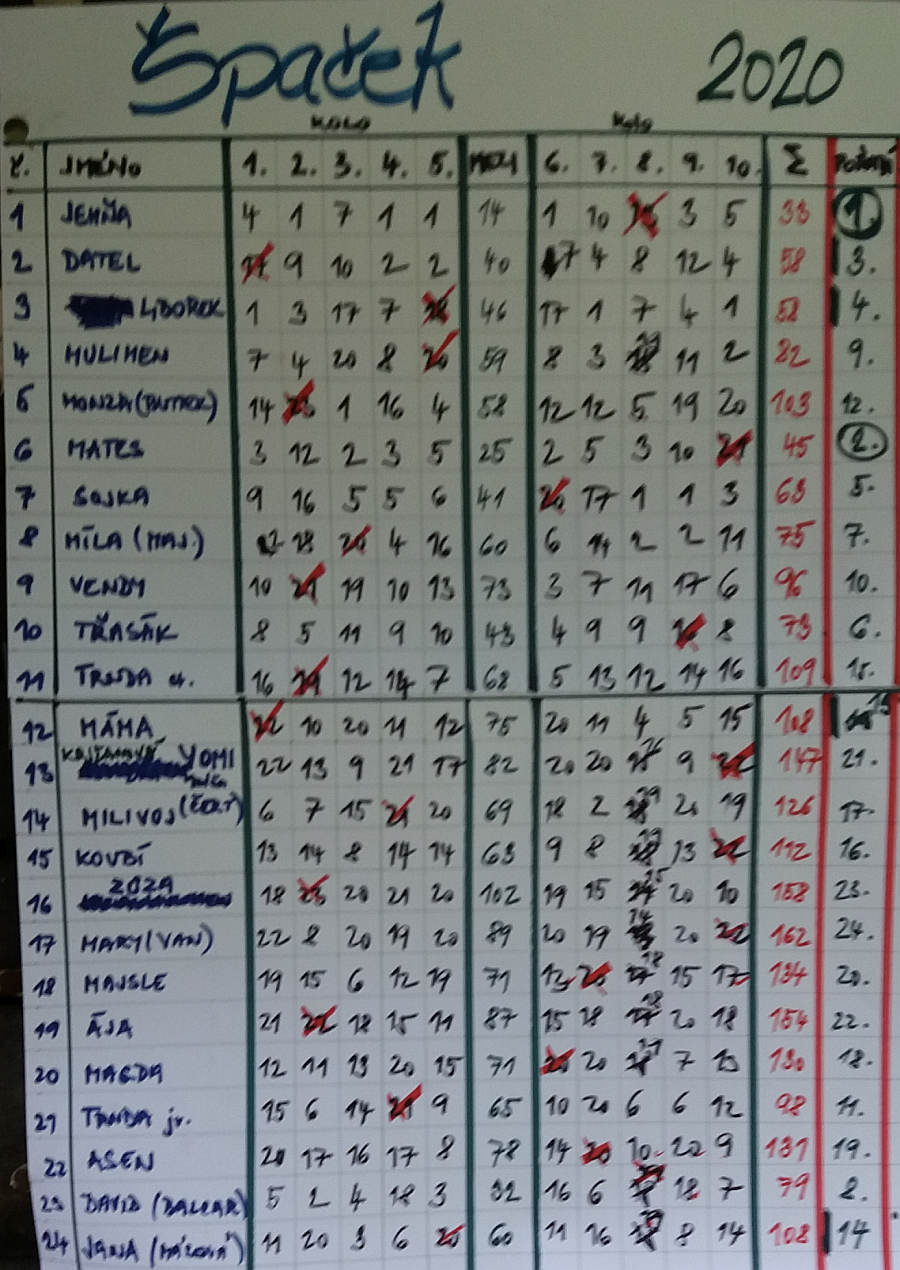 Špaček 2020
KOLO Kolo
Č. JMÉNO 1. 2. 3. 4. 5. MEZI 6. 7. 8. 9. 10. Σ POŘADÍ
1 JENŇA 4 1 7 1 1 14 1 10 3 5 33 1.
2 DATEL 9 10 2 2 40 17 4 8 12 4 58 3.
3 LIBOREK 1 3 17 7 46 17 1 7 4 1 58 4.
4 MULIMEN 7 4 20 8 20 59 8 3 19 11 2 82 9.
5 HONZA (BUTEK) 14 1 16 4 58 12 12 5 19 20 103 12.
6 MATES 3 12 2 3 5 25 2 5 3 10 21 45 2.
7 SOJKA 9 16 5 5 6 41 20 17 1 1 3 63 5.
8 MÍLA (MAJ.) 12 18 20 4 16 60 6 14 2 2 11 75 7.
9 VENDY 10 21 19 10 13 73 3 7 11 17 6 96 10.
10 TŘASÁK 8 5 11 9 10 43 4 9 9 8 73 6.
11 TRNDA st. 16 12 14 7 68 5 13 12 14 16 109 15.
12 MÁMA 22 10 20 11 12 75 20 11 4 5 15 108 13
13 YOMI 22 13 9 21 17 82 20 20 26 9 22 147 21.
14 MILIVOJ (ČERT) 6 7 15 21 20 69 18 2 19 20 19 126 17.
15 KOVBÍ 13 14 8 14 14 63 9 8 19 13 22 112 16.
16 2029 18 23 20 21 20 102 19 15 25 20 10 158 23.
17 MARY (VAN) 22 8 20 19 20 89 20 19 14 20 22 162 24.
18 MAJSLE 19 15 6 12 19 71 13 20 18 15 17 134 20.
19 ÁJA 21 22 18 15 11 87 15 18 18 20 18 154 22.
20 MAGDA 12 11 13 20 15 71 20 20 7 13 130 18.
21 TRNDA jr. 15 6 14 21 9 65 10 20 6 6 12 98 11.
22 ASEN 20 17 16 17 8 78 14 20 10 22 9 131 19.
23 DAVID (BALCAR) 5 2 4 18 3 32 16 6 18 7 79 8.
24 JANA 11 20 3 6 20 60 11 16 19 8 14 108 14